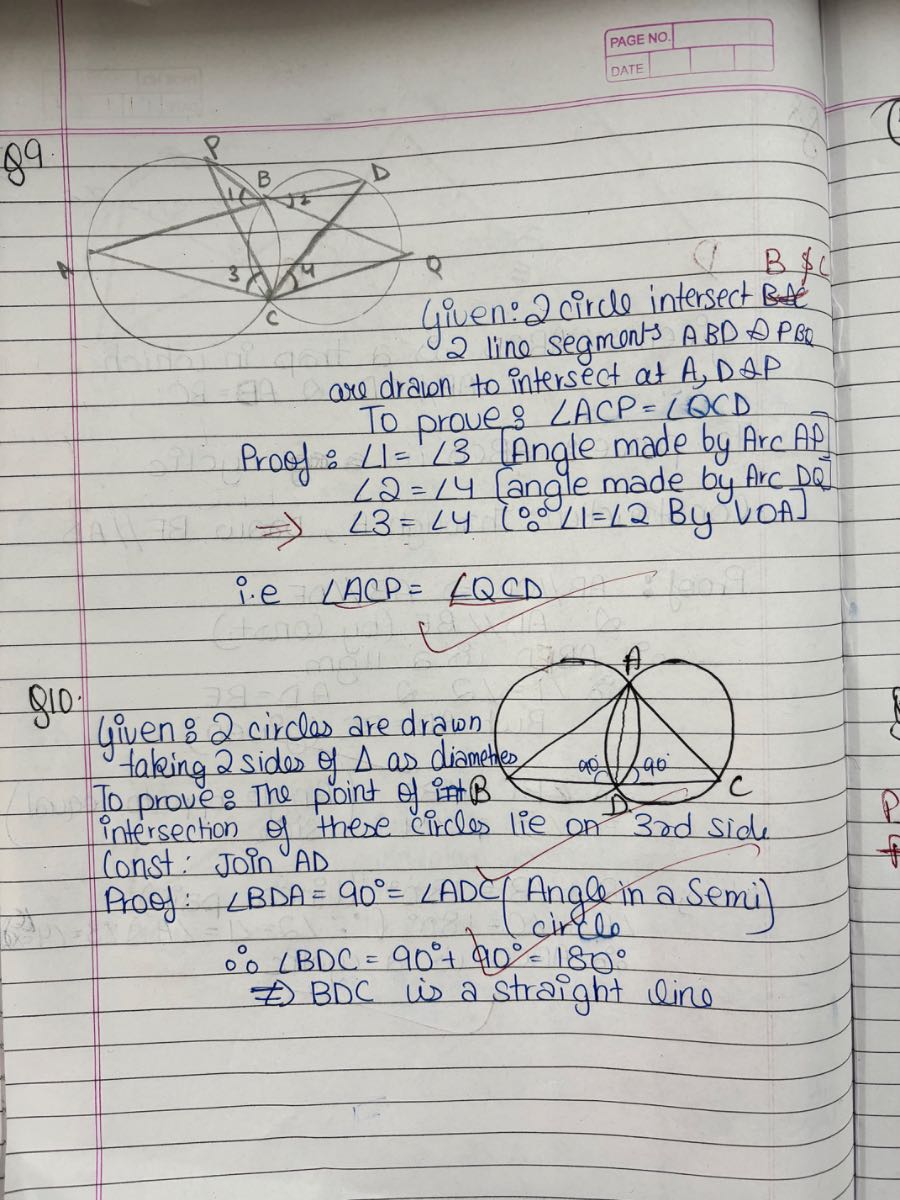 PAGE NO.
DATE
Q9
P
B
D
1
2
A
3
4
Q
C
B & C
Given: 2 circle intersect
2 line segments ABD & PBQ
are drawn to intersect at A, D & P
To prove: ∠ACP = ∠QCD
Proof: ∠1 = ∠3 [Angle made by Arc AP]
∠2 = ∠4 [angle made by Arc DQ]
⇒ ∠3 = ∠4 (∵ ∠1=∠2 By VOA]
i.e ∠ACP = ∠QCD
A
Q10.
Given: 2 circles are drawn
taking 2 sides of Δ as diametres
90°
90°
B
D
C
To prove: The point of
intersection of these circles lie on 3rd side
Const: Join AD
Proof: ∠BDA = 90° = ∠ADC (Angle in a Semi
circle)
∴ ∠BDC = 90° + 90° = 180°
⇒ BDC is a straight line